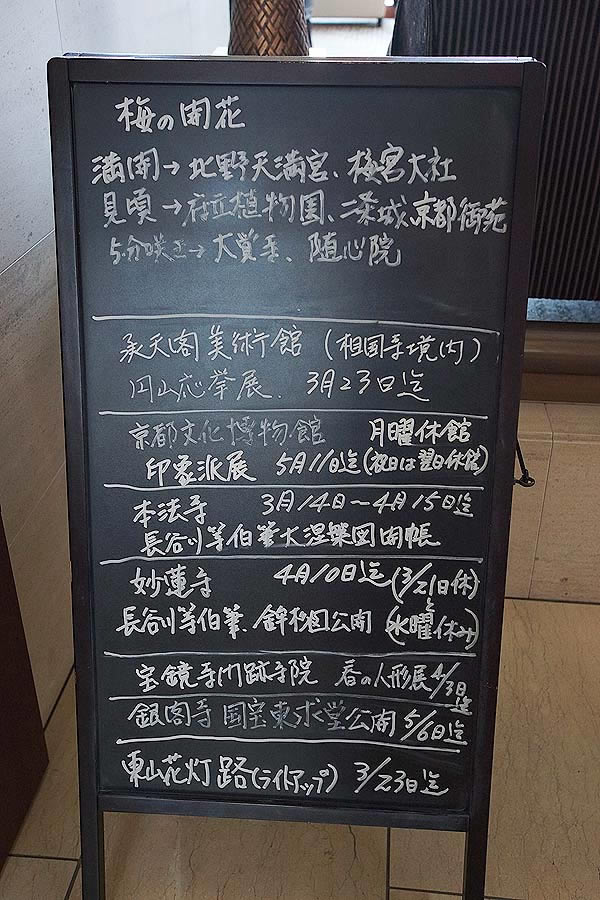 梅の開花
満開→北野天満宮、梅宮大社
見頃→府立植物園、二条城京都御苑
5分咲き→大覚寺、随心院
承天閣美術館（相国寺境内）
円山応挙展 3月23日迄
京都文化博物館 月曜休館
印象派展 5月11日迄(祝日は翌日休館)
本法寺 3月14日〜4月15日迄
長谷川等伯筆大涅槃図開帳
妙蓮寺 4月10日迄(3/21日休)と
長谷川等伯筆、錦松図公開(水曜休み)
宝鏡寺門跡寺院 春の人形展4/3日迄
銀閣寺国宝東求堂公開5/6日迄
東山花灯路(ライトアップ) 3/23日迄